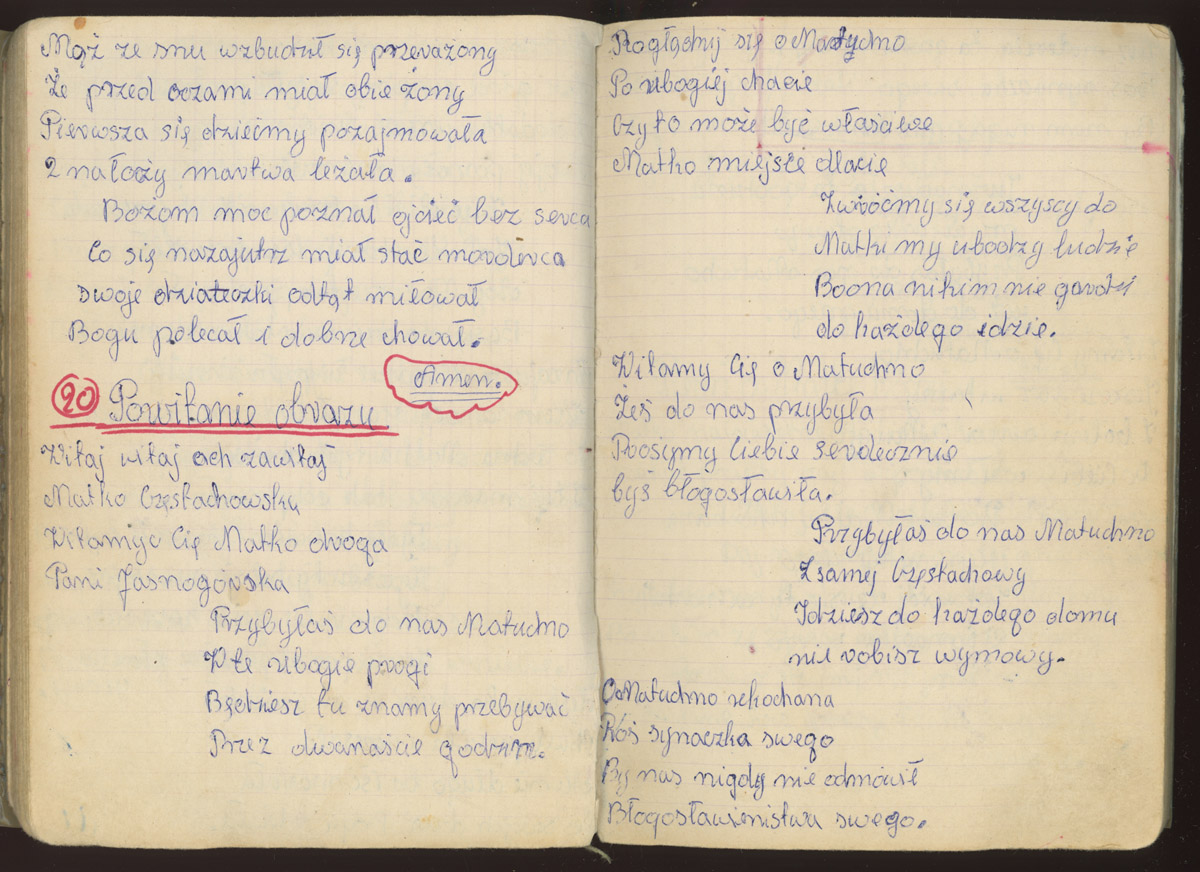 Mąż ze snu wzbudził się przeważony
Że przed oczami miał obie żony
Pierwsza się dziećmy pozajmowała
2 nałoży martwa leżała.
Bożom moc poznał ojcieć bez serca
Co się nazajutrz miał stać mordeca
swoje dziateczki odtąt miłował
Bogu polecał i dobrze chował.
Amen.
20 Powitanie obrazu
Witaj witaj ach zawitaj
Matko Częstachowsku
Witamyc Cię Matko droga
Pani Jasnogórska
Przybyłaś do nas Matuchno
W te ubogie progi
Będziesz tu znamy przebywać
Przez dwanaście godzin.
Rogłądnij się o Matuchno
Po ubogiéj chacie
Czy to może być właściwe
Matko miejsće dlacie
Zwróćmy się wszyscy do
Matki my ubodzy ludzie
Boona nikim nie gardzi
do każdego idzie.
Witamy Cię o Matuchno
Żeś do nas przybyła
Prosijmy Ciebie serdecznie
byś błogosławiła.
Przybyłaś do nas Matuchno
Z samej Częstachowy
Idziesz do każdego domu
nie robisz wymowy.
O Matuchno ukochana
Proś synaczka swego
By nas nigdy nie odmówił
Błogosławienistwa swego.